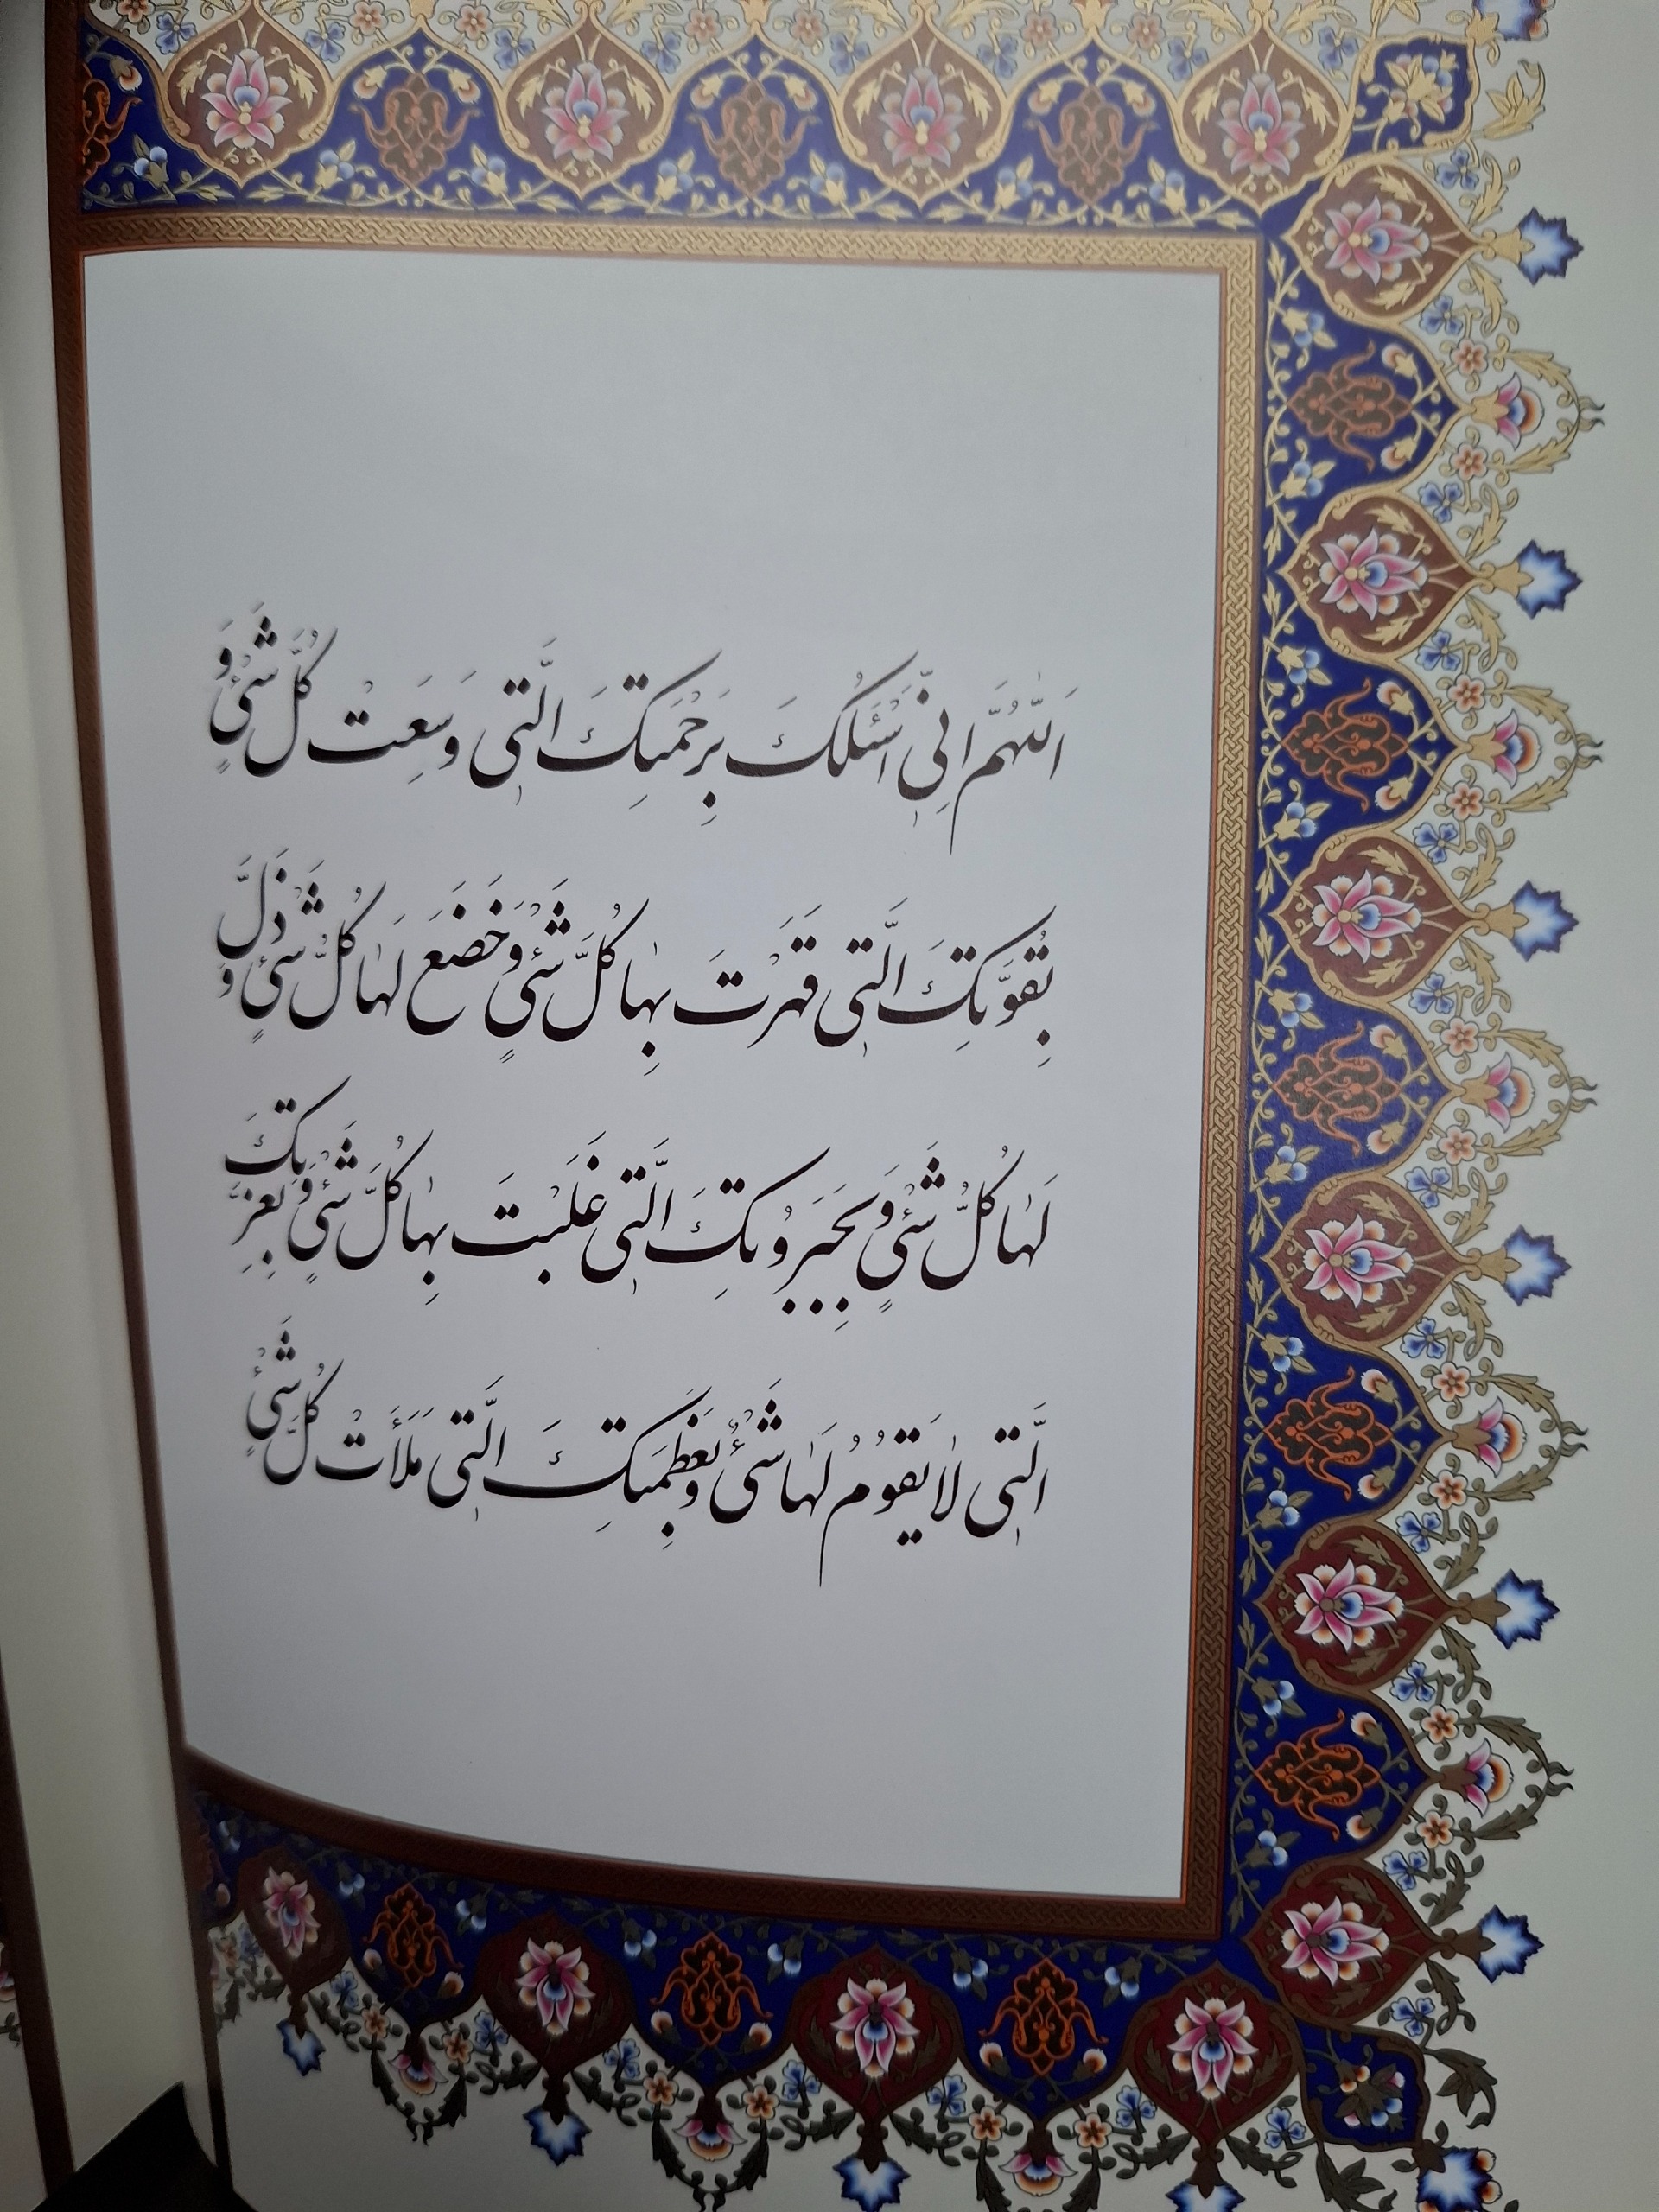 اَللّٰهُمَّ اِنّٖی اَسْئَلُكَ بِرَحْمَتِكَ الَّتٖی وَسِعَتْ كُلَّ شَیْءٍ وَ
بِقُوَّتِكَ الَّتٖی قَهَرْتَ بِهٰا كُلَّ شَیْءٍ وَ خَضَعَ لَهٰا كُلُّ شَیْءٍ وَ ذَلَّ
لَهٰا كُلُّ شَیْءٍ وَ بِجَبَرُوتِكَ الَّتٖی غَلَبْتَ بِهٰا كُلَّ شَیْءٍ وَ بِعِزَّتِكَ
الَّتٖی لٰا یَقُومُ لَهٰا شَیْءٌ وَ بِعَظَمَتِكَ الَّتٖی مَلَأَتْ كُلَّ شَیْءٍ